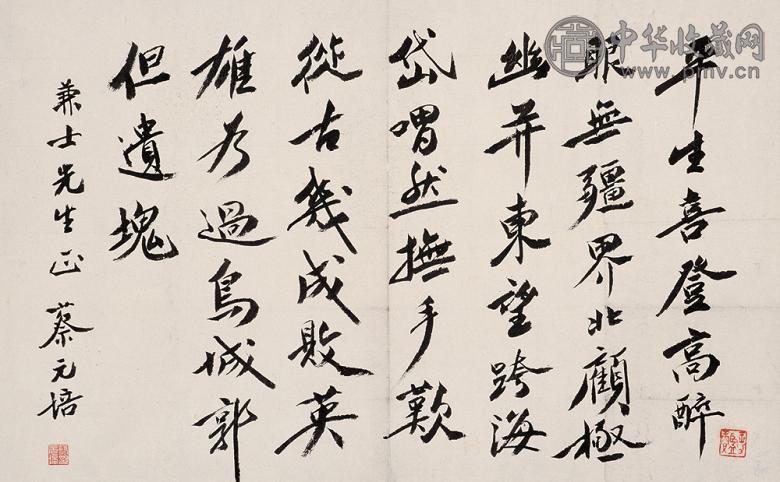 平生喜登高醉
眼無疆界北顧極
幽并東望跨海
岱喟然撫手歎
從古幾成敗英
雄為過鳥城郭
但遺塊
兼士先生正 蔡元培
中华收藏网
www.pmv.cn